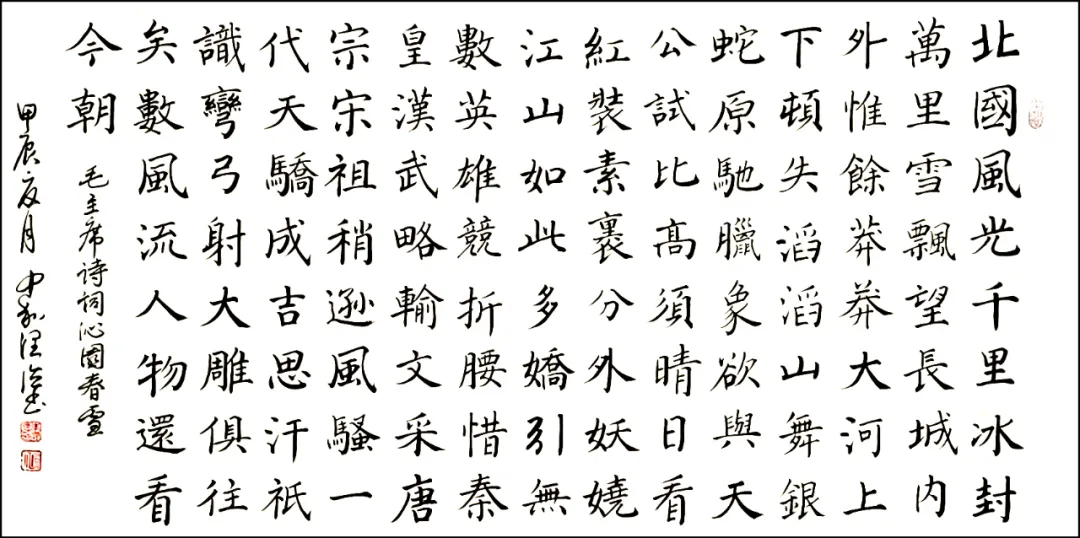 北國風光千里冰封
萬里雪飄望長城内
外惟餘莽莽大河上
下頓失滔滔山舞銀
蛇原馳臘象欲與天
公試比高須晴日看
紅裝素裹分外妖嬈
江山如此多嬌引無
數英雄競折腰惜秦
皇漢武略輸文采唐
宗宋祖稍遜風騷一
代天驕成吉思汗祇
識彎弓射大雕俱往
矣數風流人物還看
今朝
毛主席诗词沁園春雪
甲辰夏月